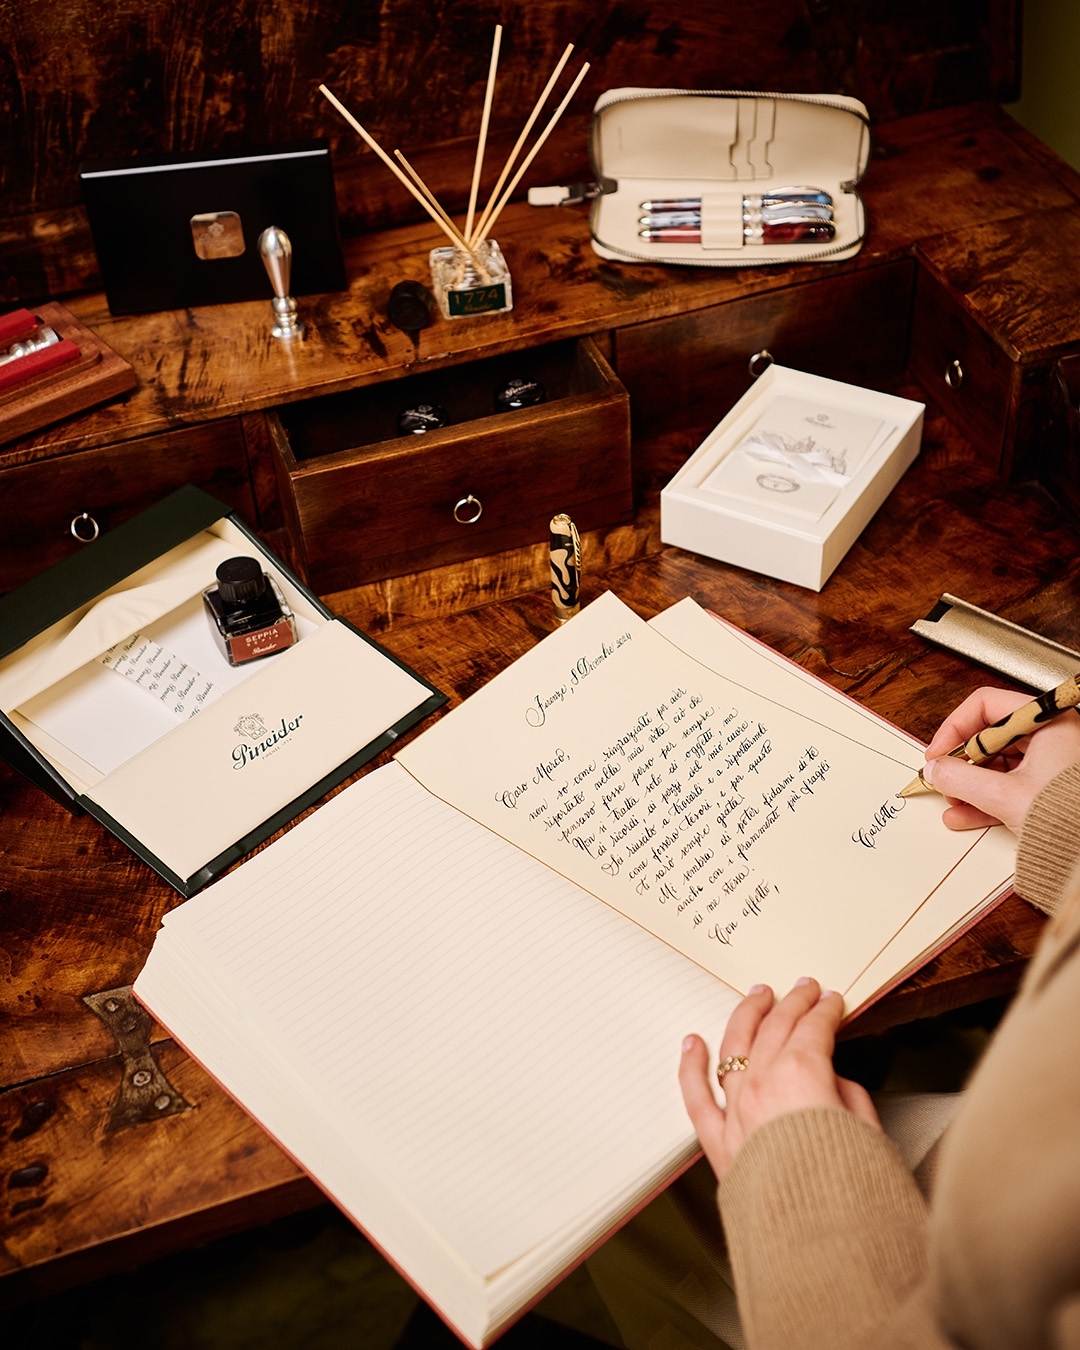 1774
Pineider
Pineider
SEPPIA
SEPIA
Pineider
Pineider
Firenze, 8 Dicembre 2024
Caro Marco,
non so come ringraziarti per aver
riportato nella mia vita ciò che
pensavo fosse perso per sempre.
Non si tratta solo di oggetti, ma
di ricordi, di pezzi del mio cuore.
Sei riuscito a trovarli e a riportarmeli
come fossero tesori, e per questo
ti sarò sempre grata!
Mi sembra di poter fidarmi di te
anche con i frammenti più fragili
di me stessa.
Con affetto,
Carlotta